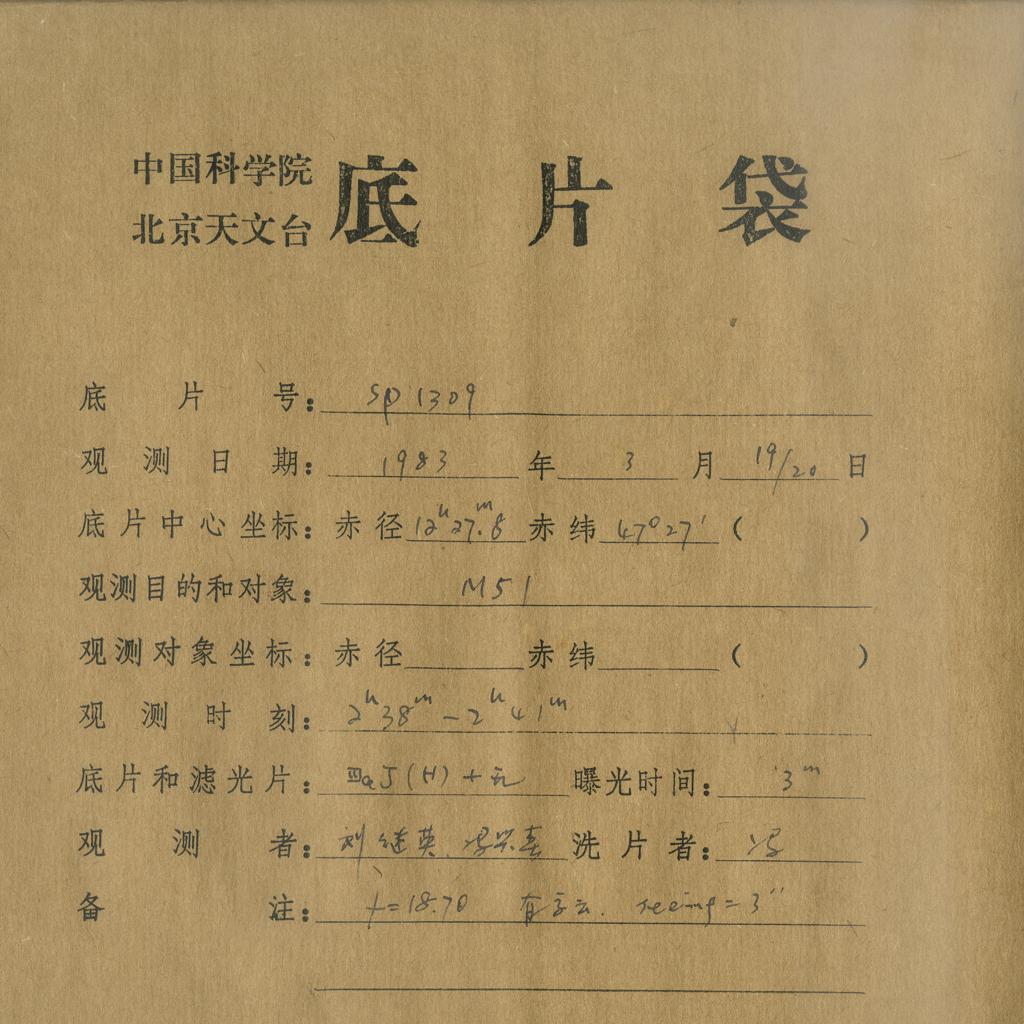 中国科学院
北京天文台
底片袋
底片号： SP 1309
观测日期： 1983 年 3 月 19/20 日
底片中心坐标：赤径 12h27m.8 赤纬 47°27′ （ ）
观测目的和对象： M51
观测对象坐标：赤径 赤纬 （ ）
观测时刻： 2h38m - 2h41m
底片和滤光片： IIIaJ(H) + 曝光时间： 3m
观测者： 刘继英 洗片者：
备注： f=18.70 有 云. seeing = 3″